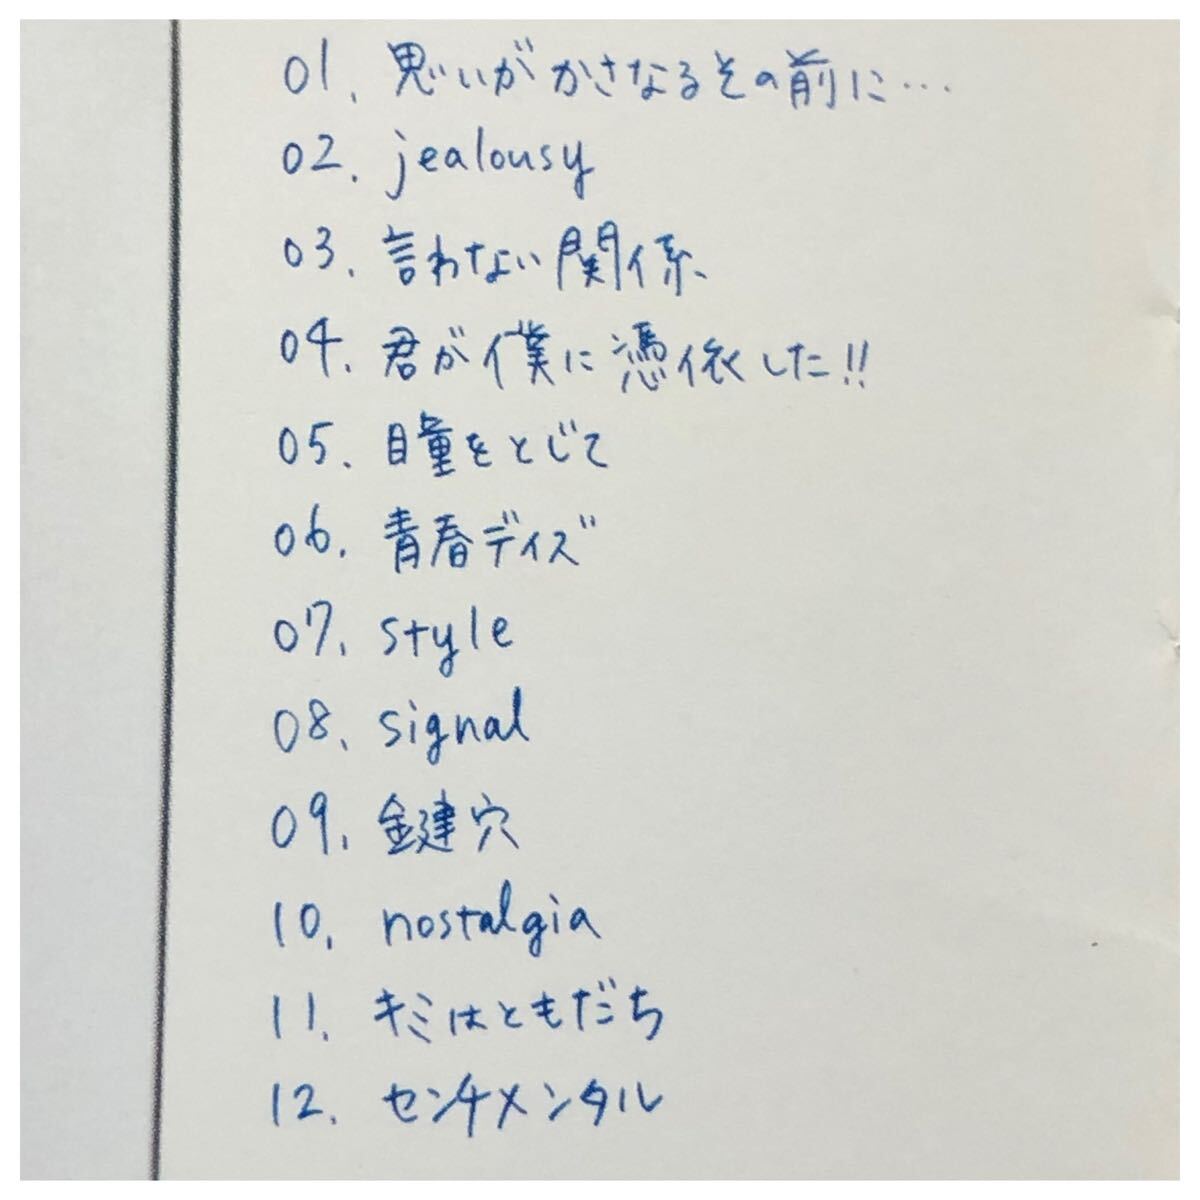 01. 思いがかさなるその前に…
02. jealousy
03. 言わない関係
04. 君が僕に憑依した!!
05. 瞳をとじて
06. 青春デイズ
07. style
08. signal
09. 鍵穴
10. nostalgia
11. キミはともだち
12. センチメンタル